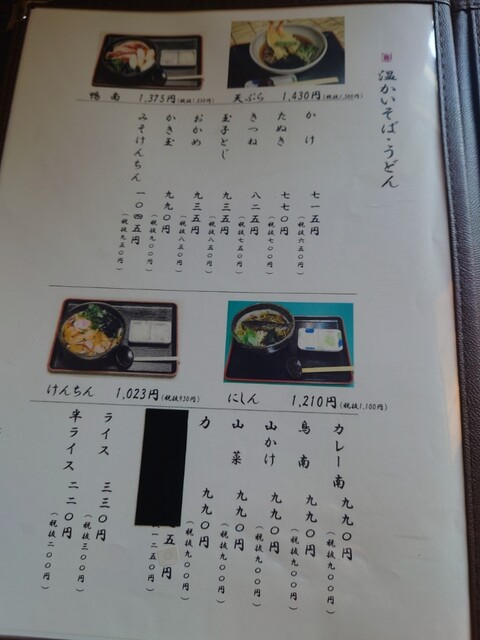 温かいそば・うどん
天ぷら 1,430円(税抜1,300円)
鴨南 1,375円(税抜1,250円)
かけ 七一五円(税抜六五〇円)
たぬき 七七〇円(税抜七〇〇円)
きつね 八二五円(税抜七五〇円)
玉子とじ 九三五円(税抜八五〇円)
おかめ 九三五円(税抜八五〇円)
かき玉 九九〇円(税抜九〇〇円)
みそけんちん 一〇四五円(税抜九五〇円)
にしん 1,210円(税抜1,100円)
けんちん 1,023円(税抜930円)
カレー南 九九〇円(税抜九〇〇円)
鳥南 九九〇円(税抜九〇〇円)
山かけ 九九〇円(税抜九〇〇円)
山菜 九九〇円(税抜九〇〇円)
力 九九〇円(税抜九〇〇円)
五円
一二五〇円)
ライス 三三〇円(税抜三〇〇円)
半ライス 二二〇円(税抜二〇〇円)